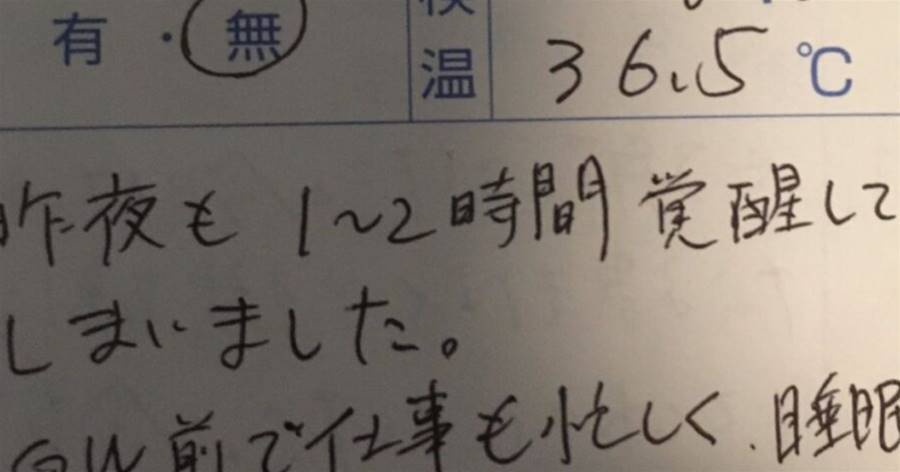 有・無
検温 36.5℃
昨夜も 1~2時間 覚醒して
しまいました。
GW前で仕事も忙しく、睡眠